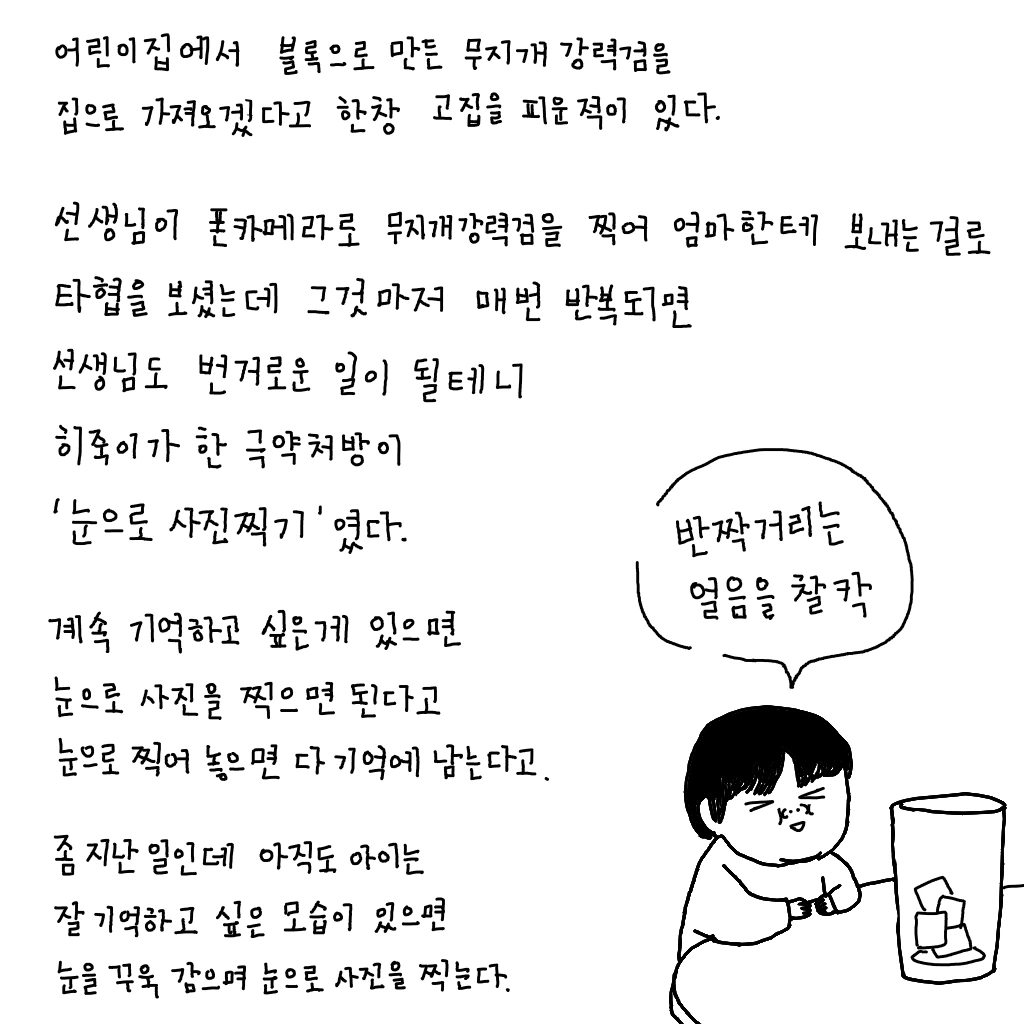 어린이집에서 블록으로 만든 무지개 강력검을
집으로 가져오겠다고 한창 고집을 피운적이 있다.
선생님이 폰카메라로 무지개강력검을 찍어 엄마한테 보내는걸로
타협을 보셨는데 그것마저 매번 반복되면
선생님도 번거로운 일이 될테니
히죽이가 한 극약처방이
'눈으로 사진찍기'였다.
계속 기억하고 싶은게 있으면
눈으로 사진을 찍으면 된다고
눈으로 찍어 놓으면 다 기억에 남는다고.
좀 지난 일인데 아직도 아이는
잘 기억하고 싶은 모습이 있으면
눈을 꾸욱 감으며 눈으로 사진을 찍는다.
반짝거리는
얼음을 찰칵